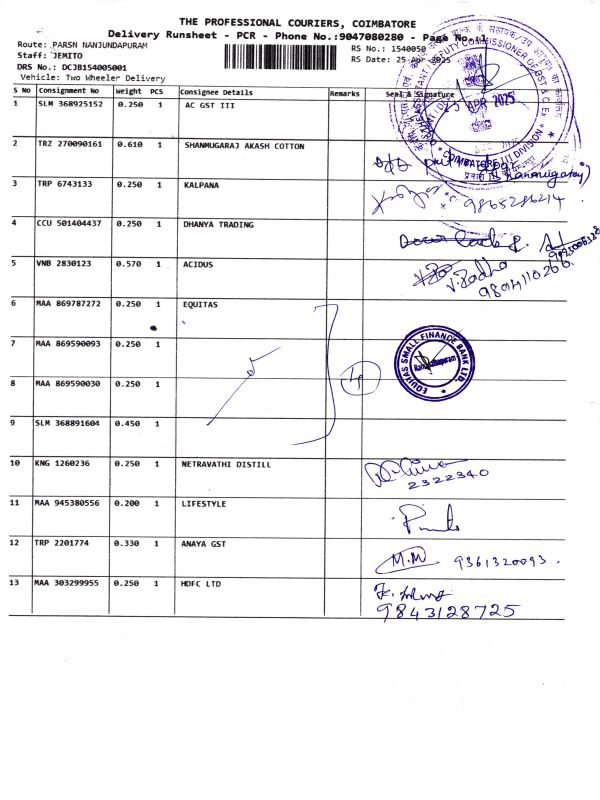 THE PROFESSIONAL COURIERS, COIMBATORE
Delivery Runsheet - PCR - Phone No.:9047080280 - Page No.:1
Route: PARSN NANJUNDAPURAM
RS No.: 1540050
Staff: JEMITO
RS Date: 25-Apr-2025
DRS No.: DCJB154005001
Vehicle: Two Wheeler Delivery
S No Consignment No Weight PCS Consignee Details Remarks Seal & Signature
1 SLM 368925152 0.250 1 AC GST III
APR 2025
COIMBATORE III DIVISION
2 TRZ 270090161 0.610 1 SHANMUGARAJ AKASH COTTON
3 TRP 6743133 0.250 1 KALPANA
9865286214
4 CCU 501404437 0.250 1 DHANYA TRADING
5 VNB 2830123 0.570 1 ACIDUS
V. Radha
9894110266
6 MAA 869787272 0.250 1 EQUITAS
7 MAA 869590093 0.250 1
EQUITAS SMALL FINANCE BANK LTD.
Ramanathapuram
8 MAA 869590030 0.250 1
9 SLM 368891604 0.450 1
10 KNG 1260236 0.250 1 NETRAVATHI DISTILL
2322340
11 MAA 945380556 0.200 1 LIFESTYLE
12 TRP 2201774 0.330 1 ANAYA GST
M.M 9361320093.
13 MAA 303299955 0.250 1 HDFC LTD
9843128725